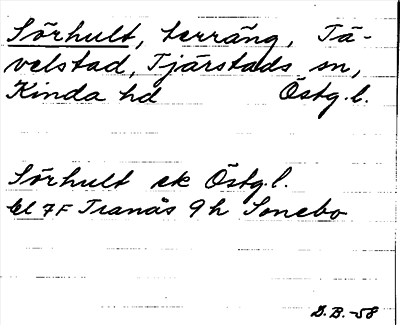 Sörhult, terräng, Tä-
velstad, Tjärstads sn,
Kinda hd Östg.l.
Sörhult ek Östg.l.
bl 7F Tranås 9h Sonebo
D.B.-58